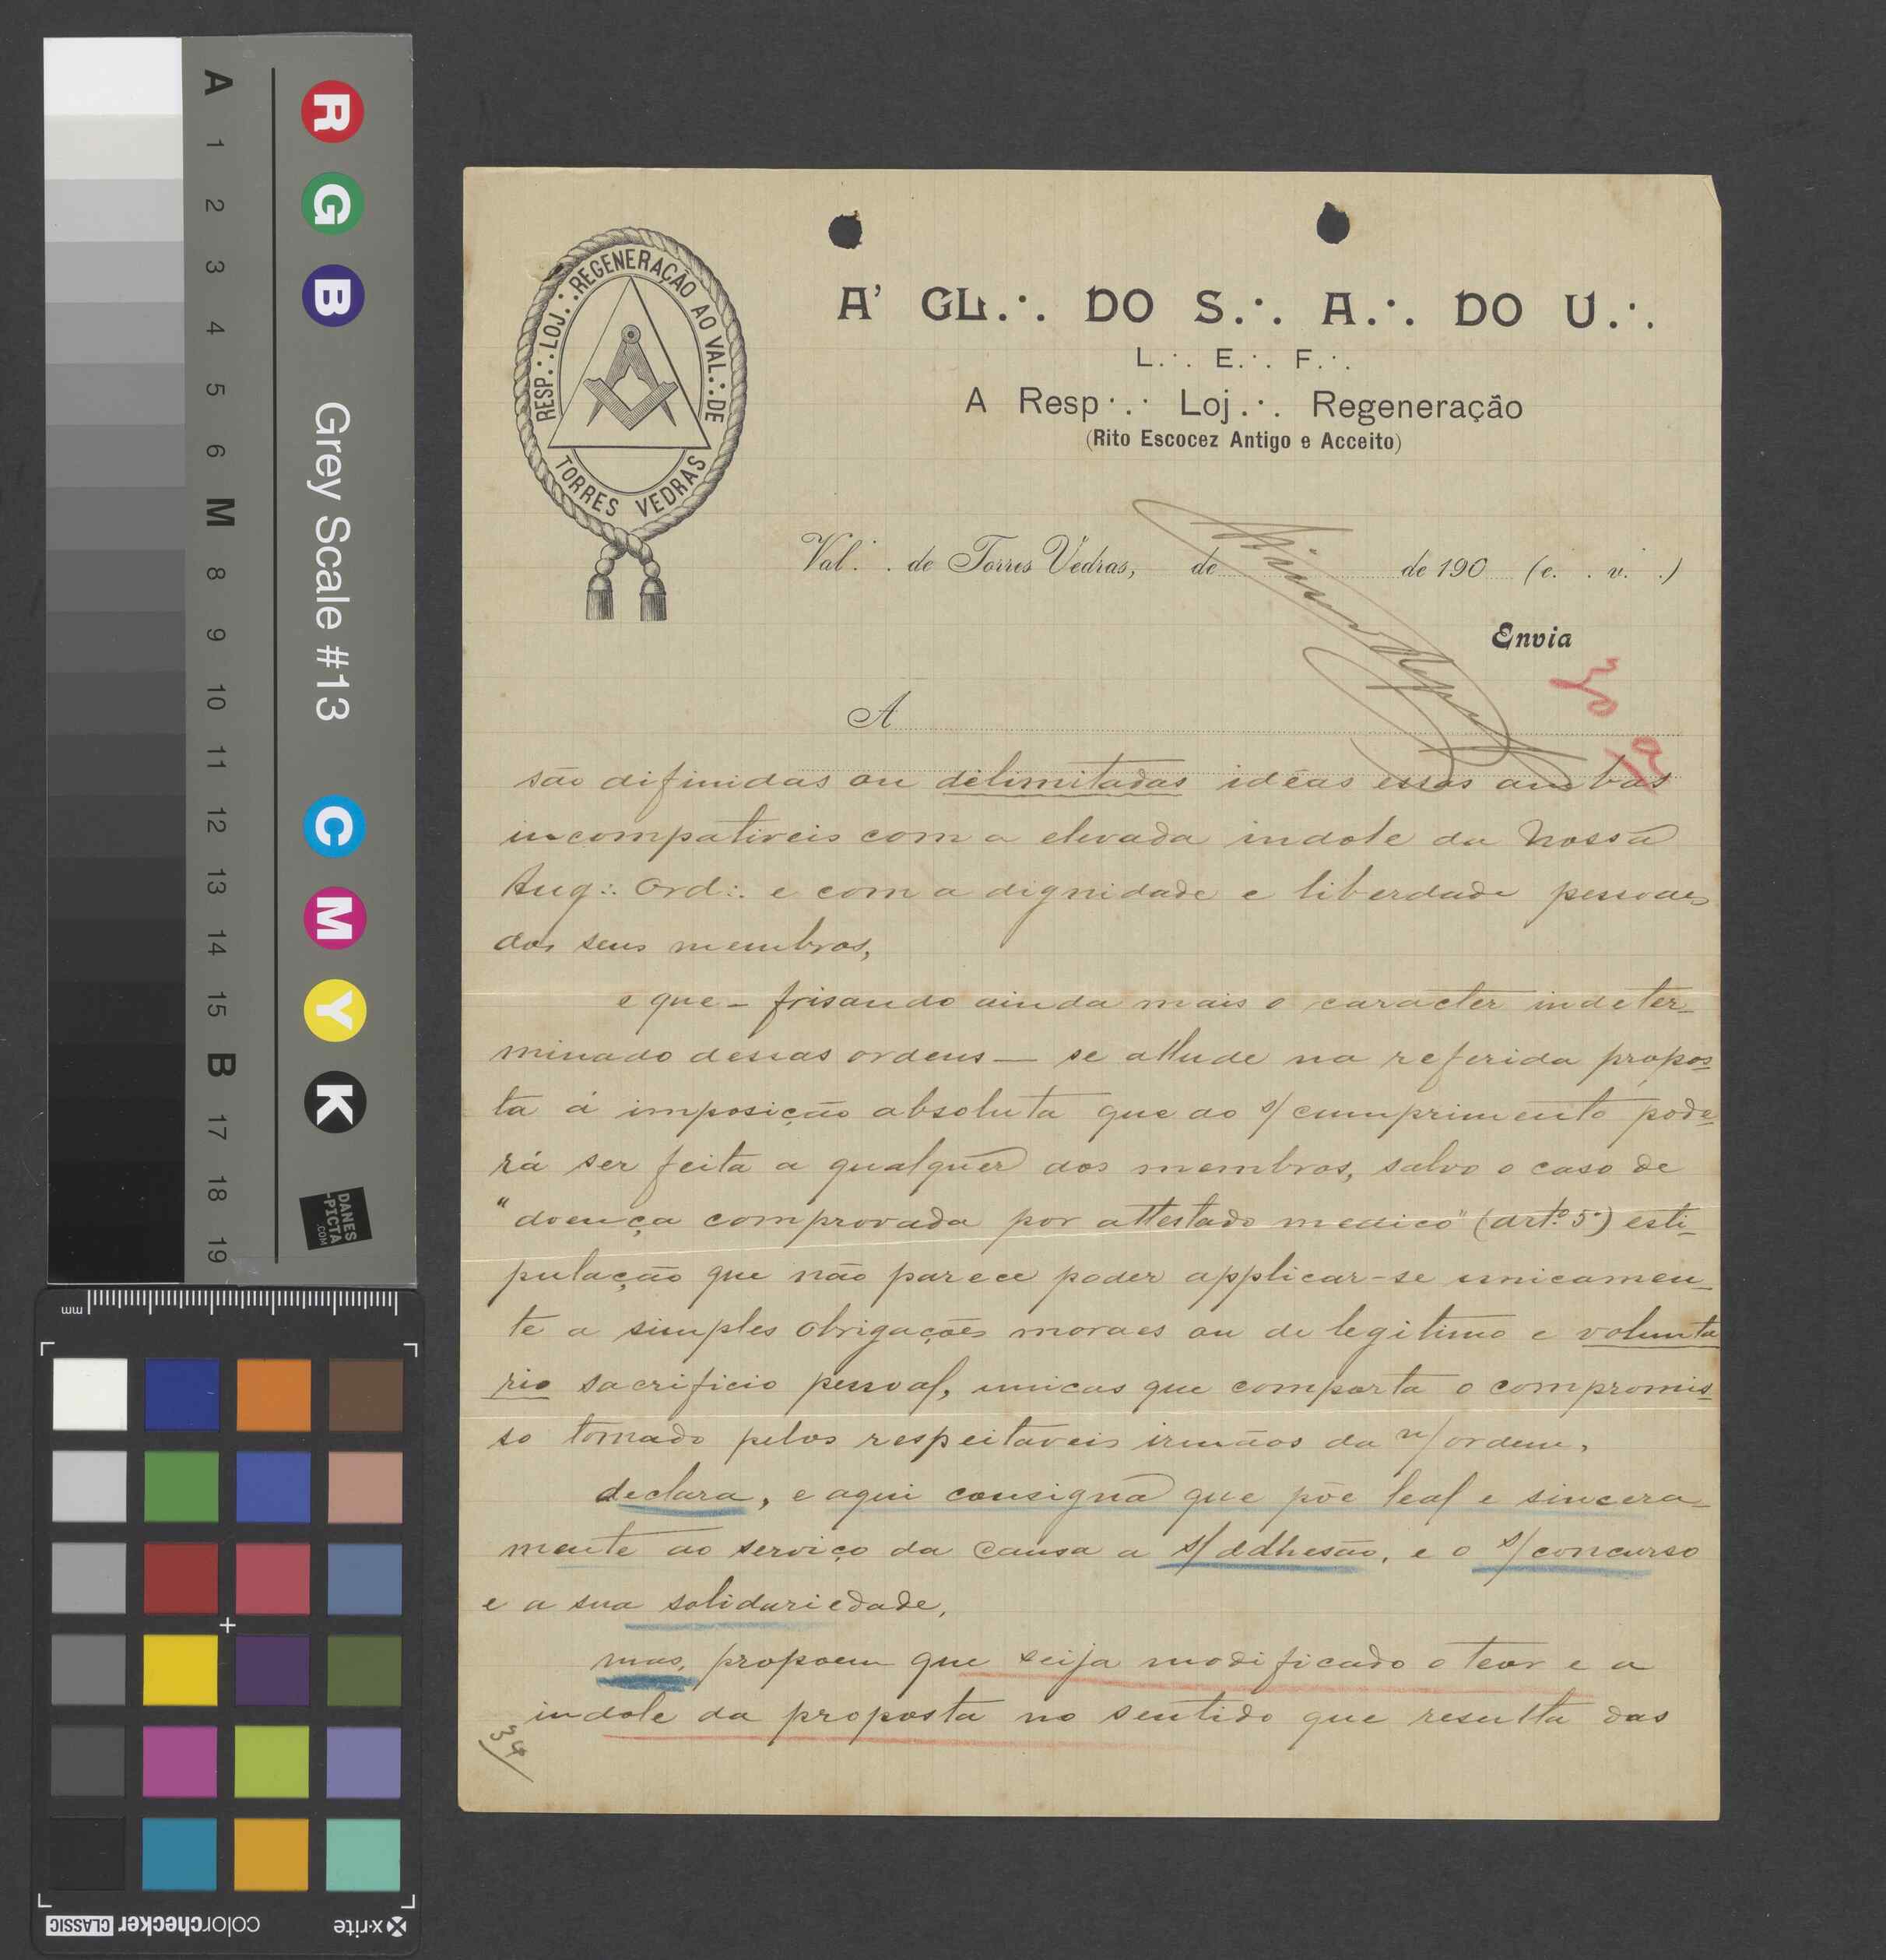 A
1
2
3
4
5
6
M
8
9
10
11
12
13
14
15
B
17
18
19
R
G
B
Grey Scale #13
C
M
Y
K
DANES
-PICTA
.COM
mm
colorchecker CLASSIC
x-rite
RESP.∴ LOJ.∴ REGENERAÇÃO AO VAL.∴ DE
TORRES VEDRAS
A' GL.∴ DO S.∴ A.∴ DO U.∴
L.∴ E.∴ F.∴
A Resp∴ Loj.∴ Regeneração
(Rito Escocez Antigo e Acceito)
Val.∴ de Torres Vedras, de de 190 (e.∴ v.∴)
Envia
A
são difinidas ou delimitadas idéas essas ambas
incompativeis com a elevada indole da Nossa
Aug∴ Ord∴ e com a dignidade e liberdade pessoaes
dos seus membros,
e que – frisando ainda mais o caracter indeter-
minado dessas ordens — se allude na referida propos-
ta á imposição absoluta que ao s/ cumprimento pode-
rá ser feita a qualquer dos membros, salvo o caso de
"doença comprovada por attestado medico" (artº 5º) esti-
pulação que não parece poder applicar-se unicamen-
te a simples obrigações moraes ou de legitimo e volunta
rio sacrificio pessoal, unicas que comporta o compromis-
so tomado pelos respeitaveis irmãos da n/ ordem,
declara, e aqui consigna que põe leal e sincera-
mente ao serviço da Causa a s/ adhesão, e o s/ concurso
e a sua solidariedade,
mas, propoem que seija modificado o teor e a
indole da proposta no sentido que resulta das
34